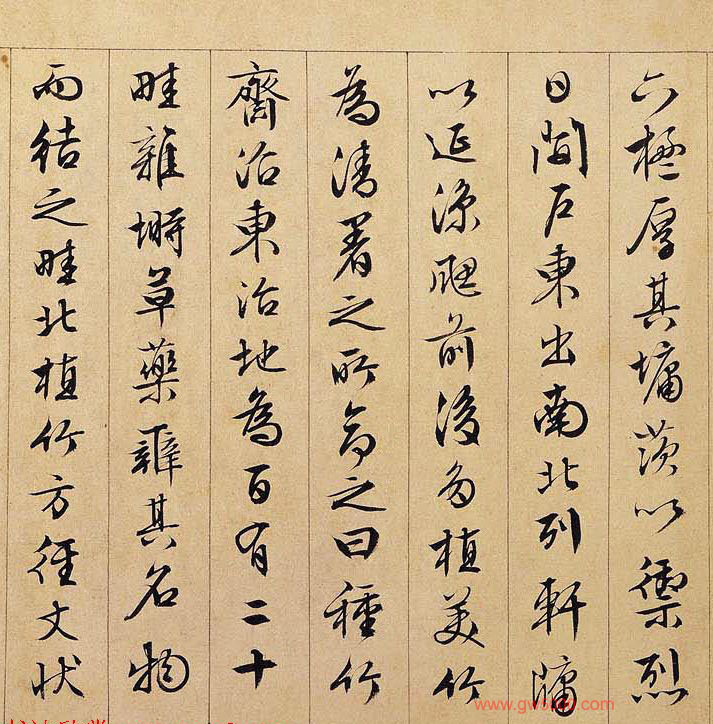 六楹厚其墉茨以禦烈
日開戶東出南北列軒牖
以延涼颸前後多植美竹
為清暑之所命之曰種竹
齋沼東治地為百有二十
畦雜蒔草藥辨其名物
而揭之畦北植竹方徑丈狀